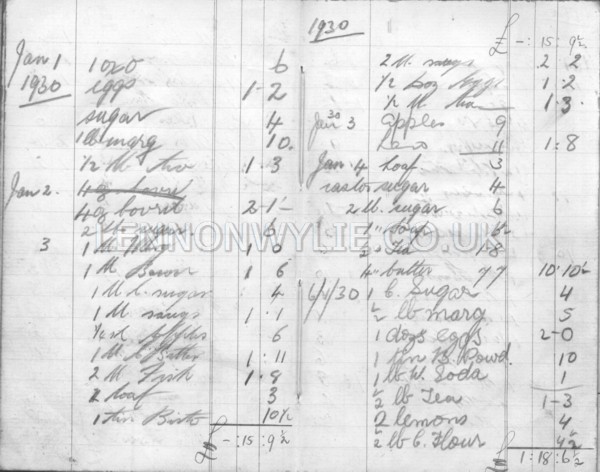 Jan 1 1 oxo 6
1930 eggs 1-2
sugar 4
1 lb marg 10.
1/2 lb tea 1.3
Jan 2. 4 oz bovril
4 oz bovril 2-1-
2 lb sugar 6
3 1 lb 1 0
1 lb Bacon 1 6
1 lb c. sugar 4
1 lb sausgs 1.1
Apples 6
1 lb Butter 1:11
2 lb Fish 1-8
2 loaf 3
1 tin Bisto 10 1/2
£ -:15:9 1/2
1930
£ -:15:9 1/2
2 lb sausgs 2 2
1/2 doz eggs 1-2
1/2 lb tea 1.3
Jan 3 apples 9
11 1:8
Jan. 4 loaf 3
castor sugar 4
2 lb. sugar 6
Tea 1-8
butter 10:10 1/2
6/1/30 1 lb. Sugar 4
1/2 lb marg 5
1 dozs eggs 2-0
1 tin B. Powd. 10
1 lb W. Soda 1
1/2 lb Tea 1-3
2 lemons 4
2 lb C. Flour 4 1/2
£ 1:18:6 1/2
LENNONWYLIE.CO.UK